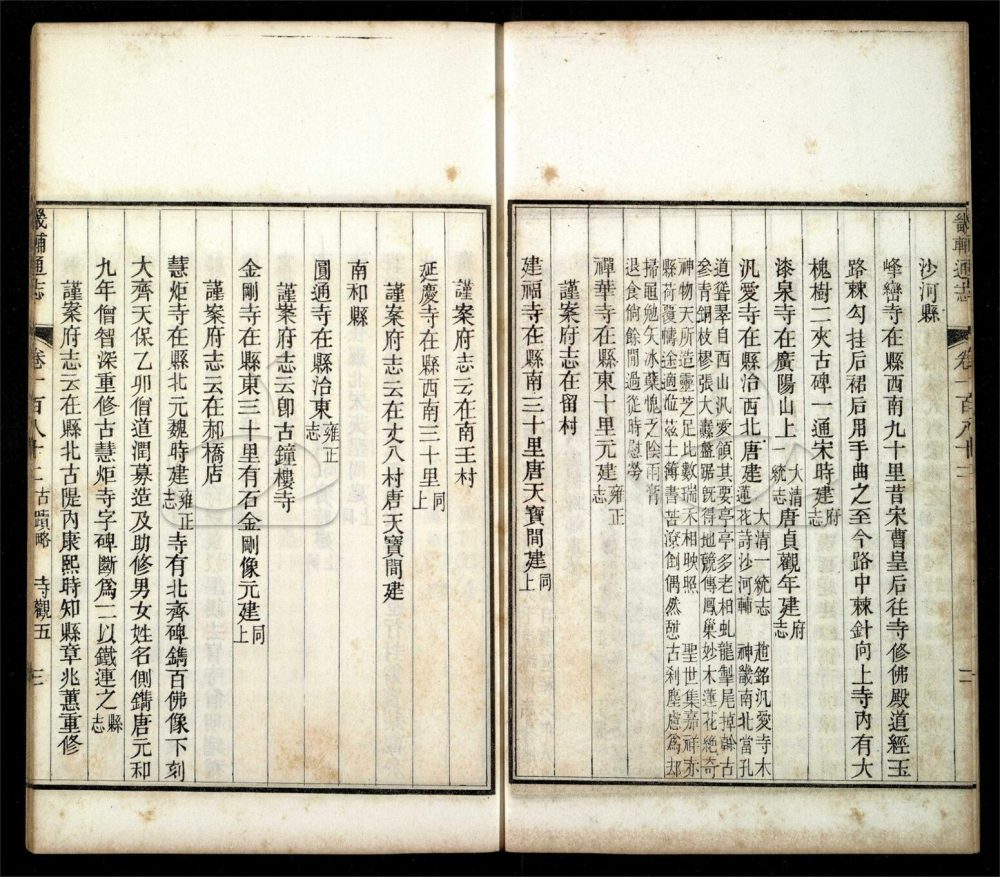 畿輔通志
卷一百八十二
二
沙河縣
峰巒寺在縣西南九十里昔宋曹皇后往寺修佛殿道經玉
路棘勾挂后裙后用手曲之至今路中棘針向上寺內有大
槐樹二夾古碑一通宋時建府志
漆泉寺在廣陽山上大清一統志唐貞觀年建府志
汎愛寺在縣治西北唐建大清一統志 趙銘汎愛寺木蓮花詩沙河輔 神畿南北當孔
道聳翠自西山汎愛領其要亭亭多老柏虬龍掣尾掉斡古
參青銅枝樛張大纛盤踞旣得地競傳鳳巢妙木蓮花絕奇
神物天所造靈芝足比數瑞禾相映照 聖世集嘉祥亦
縣荷覆幬金適涖茲土簿書苦潦倒偶然憩古刹塵慮爲却
掃黽勉矢冰蘗愧之陰雨膏
退食倘餘閒過從時慰勞
禪華寺在縣東十里元建雍正志
謹案府志在留村
建福寺在縣南三十里唐天寶間建同上
謹案府志云在南王村
延慶寺在縣西南三十里同上
謹案府志云在丈八村唐天寶間建
南和縣
圓通寺在縣治東雍正志
謹案府志云卽古鐘樓寺
金剛寺在縣東三十里有石金剛像元建同上
謹案府志云在郝橋店
慧炬寺在縣北元魏時建雍正志寺有北齊碑鐫百佛像下刻
大齊天保乙卯僧道潤募造及助修男女姓名側鐫唐元和
九年僧智深重修古慧炬寺字碑斷爲二以鐵連之縣志
謹案府志云在縣北古隄內康熙時知縣章兆蕙重修
畿輔通志
卷一百八十二
古蹟略
寺觀五
三